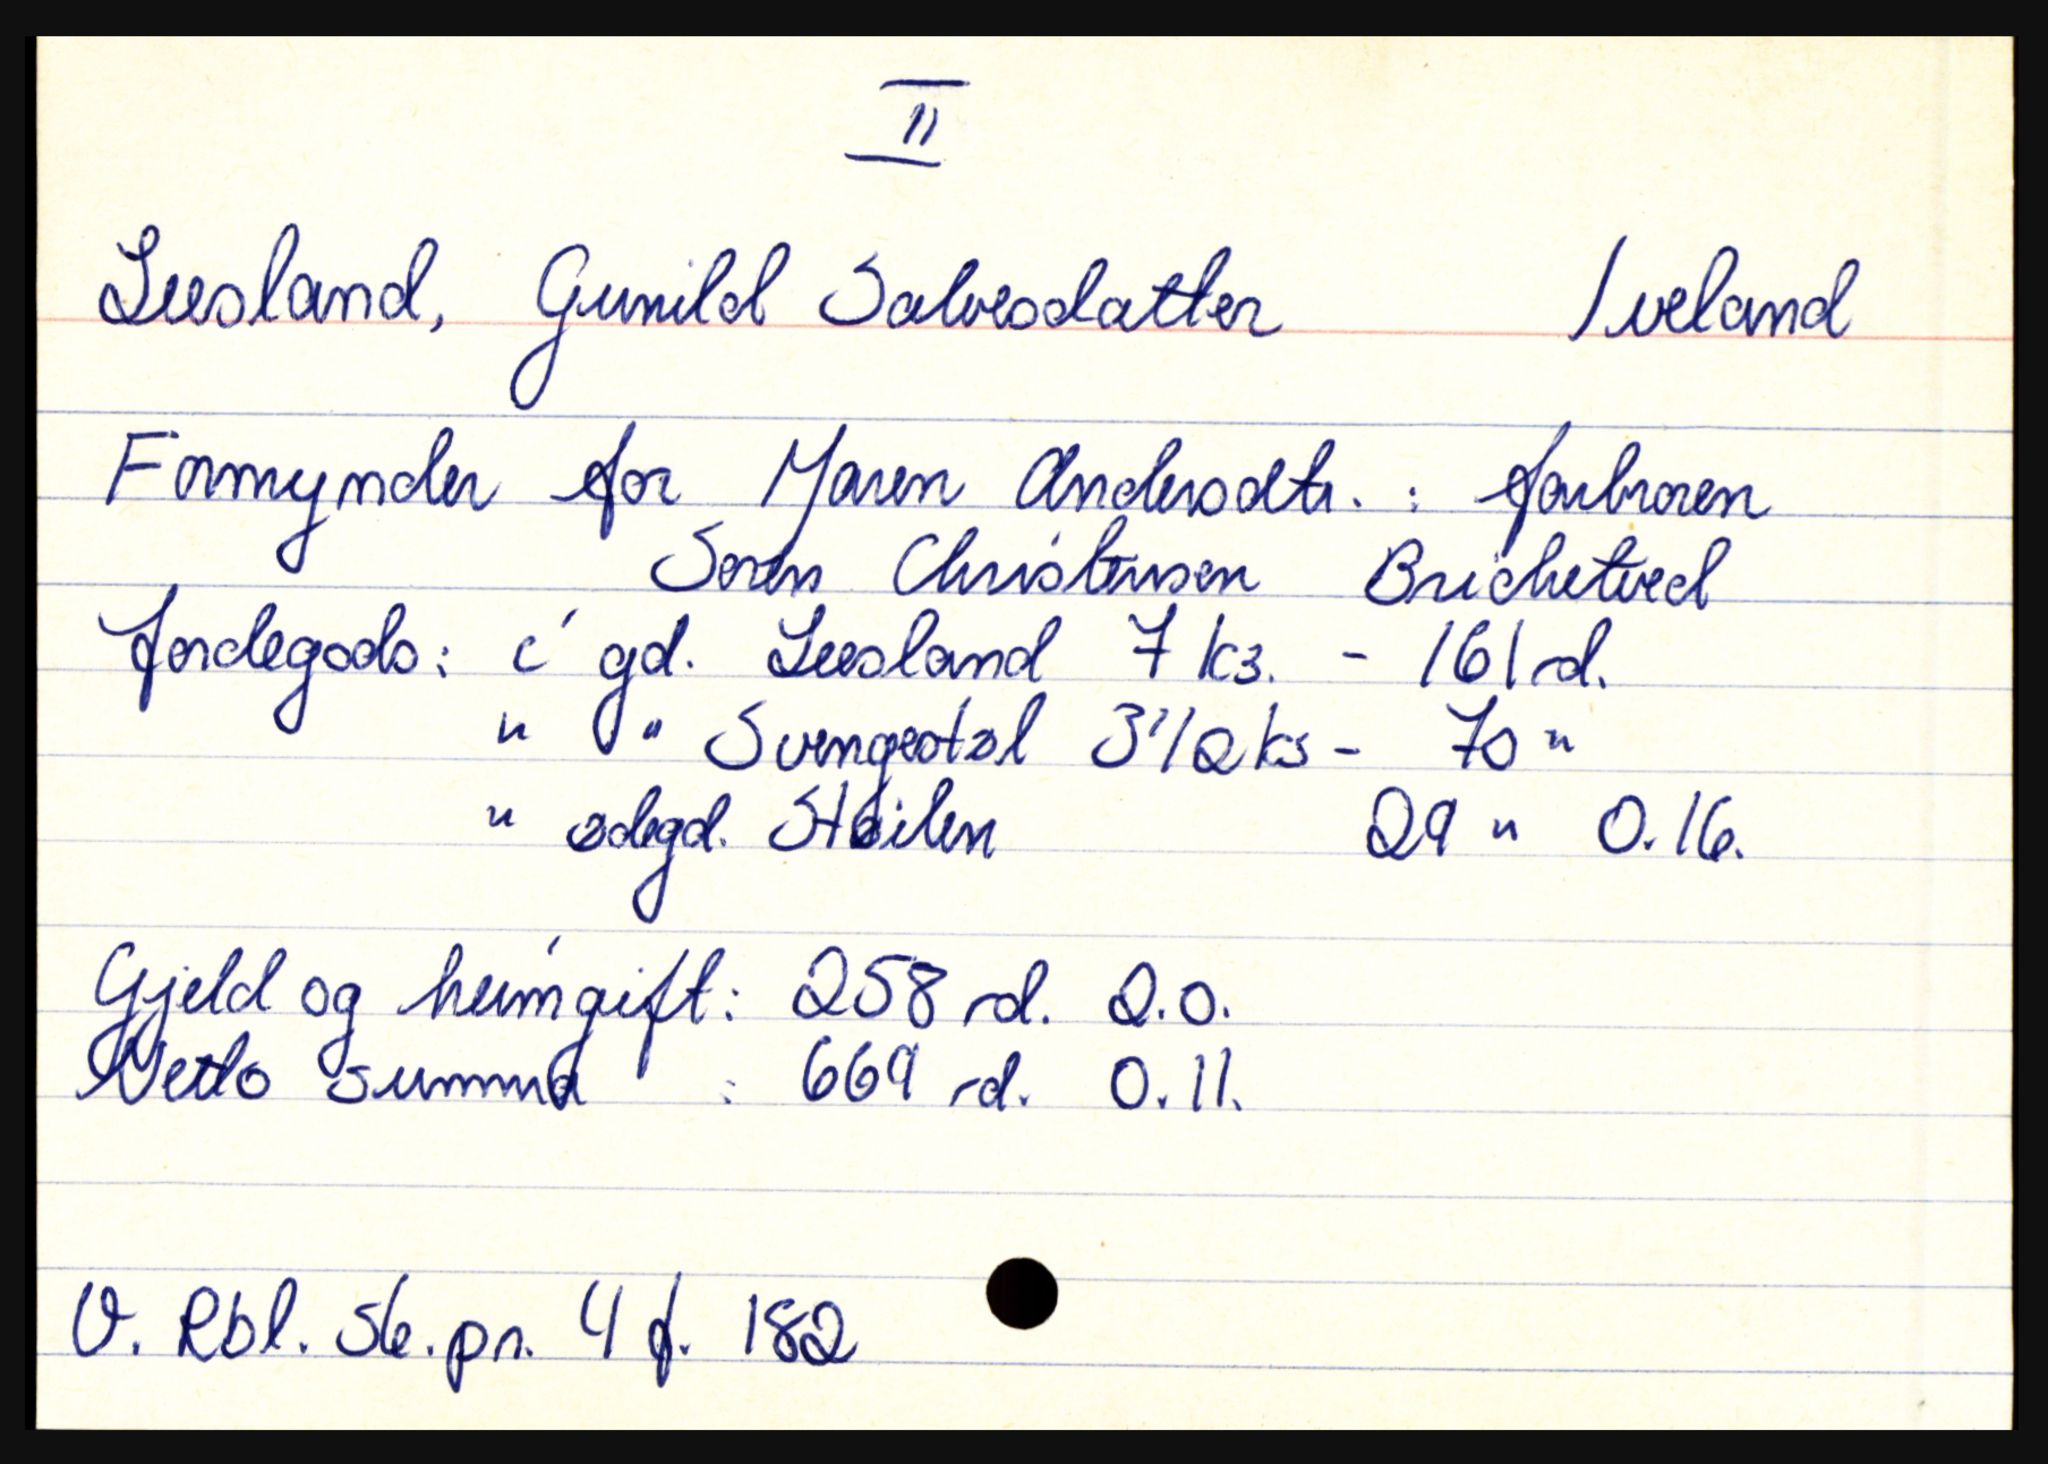 II
Leesland, Gunild Salvesdatter Iveland
Formynder for Maren Andersdtr. : farbroren
Soren Christensen Brichetved
Jordegods: i gd. Leesland 7 ks. - 161 rd.
" " Svengestøl 3 1/2 ks - 70 "
" ødegd. Støilen 29 " 0.16.
Gjeld og heimgift: 258 rd. 2.0.
Netto summa : 669 rd. 0.11.
V. Rbl. sk.pr. 4 f. 182